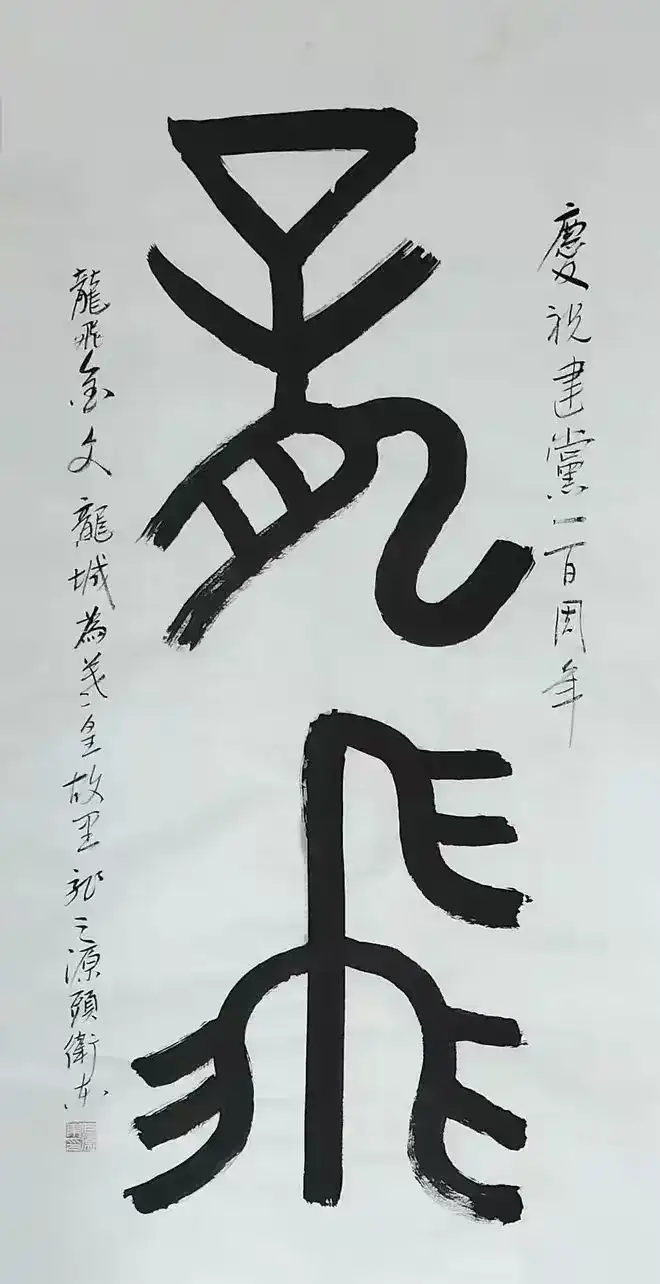 慶祝建黨一百周年
龍飛
龍飛金文龍城為羲皇故里龍之源頭衛东